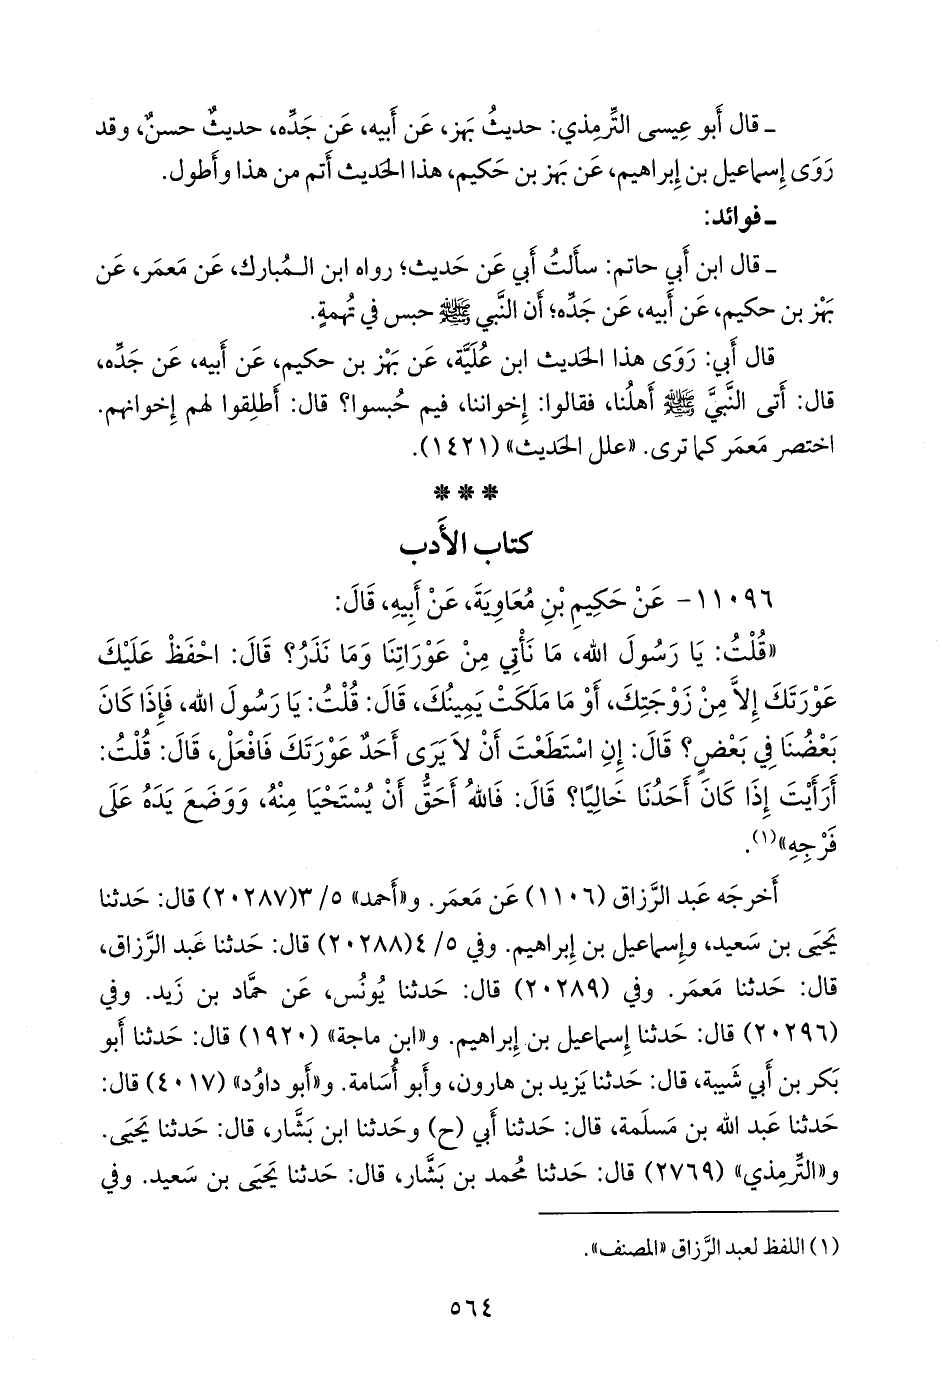 ـ قال أَبو عِيسى التِّرمِذي: حديثُ بَهز، عَن أَبيه، عَن جَدِّه، حديثٌ حسنٌ، وقد
رَوَى إِسماعيل بن إِبراهيم، عَن بَهز بن حَكيم، هذا الحَديث أَتم من هذا وأَطول.
ـ فوائد:
ـ قال ابن أَبي حاتم: سأَلتُ أَبي عَن حَديث؛ رواه ابن الـمُبارك، عَن مَعمَر، عَن
بَهْز بن حكيم، عَن أَبيه، عَن جَدِّه؛ أَن النَّبي ﷺ حبس في تُهمةٍ.
قال أَبي: رَوَى هذا الحَديث ابن عُلَيَّة، عَن بَهْز بن حكيم، عَن أَبيه، عَن جَدِّه،
قال: أَتى النَّبيَّ ﷺ أَهلُنا، فقالوا: إِخواننا، فيم حُبسوا؟ قال: أَطلِقوا لهم إِخوانهم.
اختصر مَعمَر كما ترى. «علل الحَديث» (١٤٢١).
* * *
كتاب الأَدب
١١٠٩٦- عَنْ حَكِيمِ بْنِ مُعَاوِيَةَ، عَنْ أَبِيهِ، قَالَ:
«قُلْتُ: يَا رَسُولَ الله، مَا نَأْتِي مِنْ عَوْرَاتِنَا وَمَا نَذَرُ؟ قَالَ: احْفَظْ عَلَيْكَ
عَوْرَتَكَ إِلاَّ مِنْ زَوْجَتِكَ، أَوْ مَا مَلَكَتْ يَمِينُكَ، قَالَ: قُلْتُ: يَا رَسُولَ الله، فَإِذَا كَانَ
بَعْضُنَا فِي بَعْضٍ؟ قَالَ: إِنِ اسْتَطَعْتَ أَنْ لاَ يَرَى أَحَدٌ عَوْرَتَكَ فَافْعَلْ، قَالَ: قُلْتُ:
أَرَأَيْتَ إِذَا كَانَ أَحَدُنَا خَالِيًا؟ قَالَ: فَاللهُ أَحَقُّ أَنْ يُسْتَحْيَا مِنْهُ، وَوَضَعَ يَدَهُ عَلَى
فَرْجِهِ»(١).
أَخرجَه عَبد الرَّزاق (١١٠٦) عَن مَعمَر. و«أَحمد» ٥/ ٣(٢٠٢٨٧) قال: حَدثنا
يَحيَى بن سَعيد، وإِسماعيل بن إِبراهيم. وفي ٥/ ٤(٢٠٢٨٨) قال: حَدثنا عَبد الرَّزاق،
قال: حَدثنا مَعمَر. وفي (٢٠٢٨٩) قال: حَدثنا يُونُس، عَن حَمَّاد بن زَيد. وفي
(٢٠٢٩٦) قال: حَدثنا إِسماعيل بن إِبراهيم. و«ابن ماجة» (١٩٢٠) قال: حَدثنا أَبو
بَكر بن أَبي شَيبة، قال: حَدثنا يَزيد بن هارون، وأَبو أُسَامة. و«أَبو داوُد» (٤٠١٧) قال:
حَدثنا عَبد الله بن مَسلَمة، قال: حَدثنا أَبي (ح) وحَدثنا ابن بَشَّار، قال: حَدثنا يَحيَى.
و«التِّرمِذي» (٢٧٦٩) قال: حَدثنا مُحمد بن بَشَّار، قال: حَدثنا يَحيَى بن سَعيد. وفي
(١) اللفظ لعبد الرَّزاق «المصنف».
٥٦٤